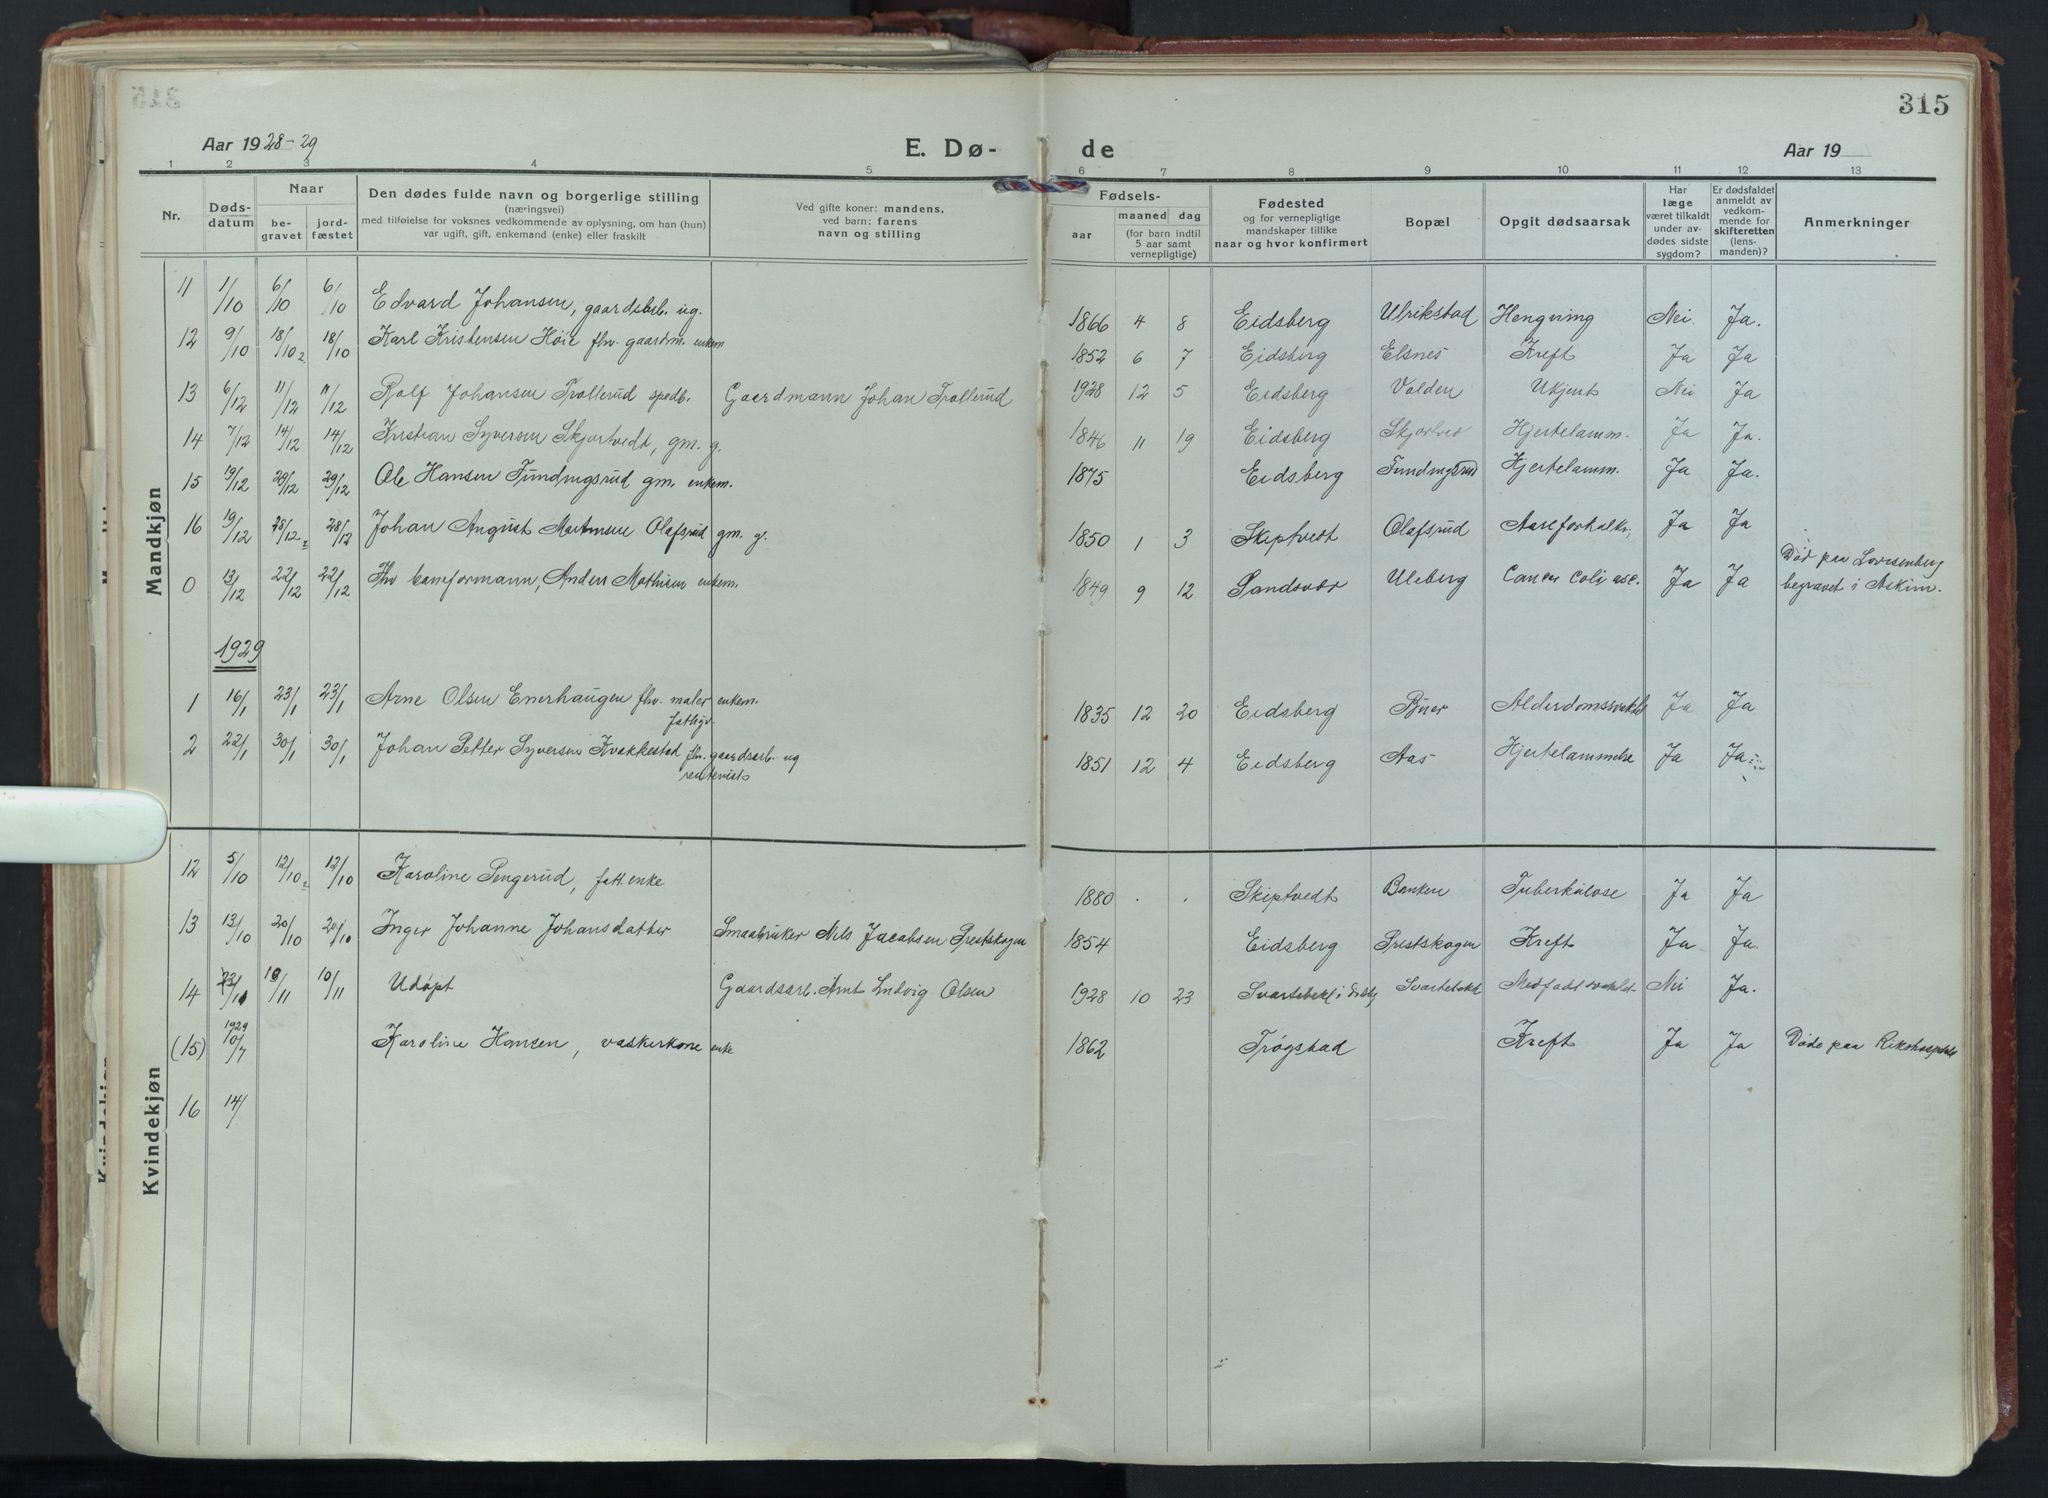 315
Aar 1928-29
E. Dø-
de
Aar 19
1 2 3 4 5 6 7 8 9 10 11 12 13
Nr.
Dødsdatum
Naar
begravet
jordfæstet
Den dødes fulde navn og borgerlige stilling
(næringsvei)
med tilføielse for voksnes vedkommende av oplysning, om han (hun)
var ugift, gift, enkemand (enke) eller fraskilt
Ved gifte koner: mandens,
ved barn: farens
navn og stilling
Fødsels-
aar
maaned
dag
(for barn indtil
5 aar samt
vernepligtige)
Fødested
og for vernepligtige
mandskaper tillike
naar og hvor konfirmert
Bopæl
Opgit dødsaarsak
Har
læge
været tilkaldt
under av-
dødes sidste
sygdom?
Er dødsfaldet
anmeldt av
vedkom-
mende for
skifteretten
(lens-
manden)?
Anmerkninger
Mandkjøn
11 1/10 6/10 6/10 Edvard Johansen, gaardsarb. ug. 1866 4 8 Eidsberg Ulrikstad Hengning Nei. Ja.
12 9/10 18/10 18/10 Karl Kristensen Høie fhv. gaardm. enkem 1852 6 7 Eidsberg Elsnes Kreft Ja Ja
13 6/12 11/12 11/12 Rolf Johansen Trollerud spedb. Gaardmann Johan Trollerud 1928 12 5 Eidsberg Volden Ukjent Nei Ja
14 7/12 14/12 14/12 Kristian Syversen Skjortvedt, gm. g. 1846 11 19 Eidsberg Skjortved Hjertelamm. Ja Ja.
15 19/12 29/12 29/12 Ole Hansen Tundingsrud gm. enkem. 1875 Eidsberg Tundingsrud Hjertelamm. Ja Ja.
16 19/12 28/12 28/12 Johan August Martinsen Olafsrud gm. g. 1850 1 3 Skiptvedt Olafsrud Aareforkalkn. Ja Ja
0 13/12 22/12 22/12 Fhv baneformann, Anders Mathisen enkem. 1849 9 12 Sandsvær Uleberg Cancer coli asc. Ja Ja Død paa Lovisenberg
begravet i Askim.
1929
1 16/1 23/1 23/1 Arne Olsen Enerhaugen fhv. maler enkem. 1835 12 20 Eidsberg Buer Alderdomssvakhet Ja Ja
fattigv.
2 22/1 30/1 30/1 Johan Petter Syversen Kvakkestad fhv. gaardsarb. ug 1851 12 4 Eidsberg Aas Hjertelammelse Ja Ja
rentenist
Kvindekjøn
12 5/10 12/10 12/10 Karoline Pengerud, fatt. enke 1880 . . Skiptvedt Banken Tuberkulose Ja Ja
13 13/10 20/10 20/10 Inger Johanne Johansdatter Smaabruker Nils Jacobsen Prestskogen 1854 Eidsberg Prestskogen Kreft Ja Ja.
14 23/10 10/11 10/11 Udøpt Gaardsarb. Arnt Ludvig Olsen 1928 10 23 Svartebekk i Svartebekk Medfødt svakhet Nei Ja.
(15) 1929 10/7 Karoline Hansen, vaskerkone enke 1862 Trøgstad Kreft Ja Ja Døde paa Rikshospitalet
16 14/